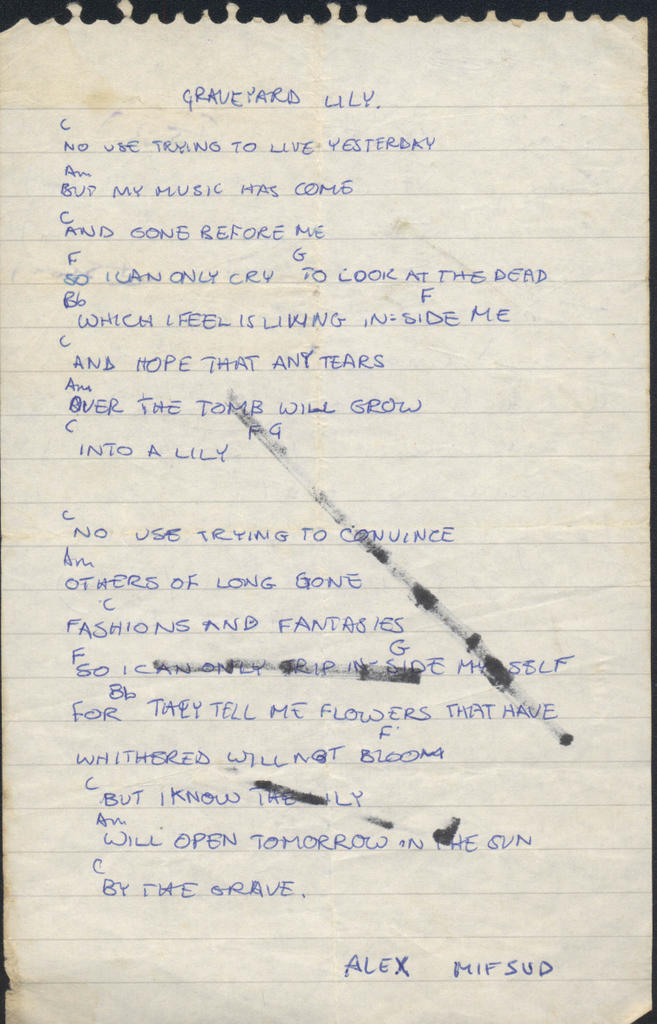 GRAVEYARD LILY.
C
NO USE TRYING TO LIVE YESTERDAY
Am
BUT MY MUSIC HAS COME
C
AND GONE BEFORE ME
F G
SO I CAN ONLY CRY TO LOOK AT THE DEAD
Bb F
WHICH I FEEL IS LIVING IN-SIDE ME
C
AND HOPE THAT ANY TEARS
Am
OVER THE TOMB WILL GROW
C F G
INTO A LILY
C
NO USE TRYING TO CONVINCE
Am
OTHERS OF LONG GONE
C
FASHIONS AND FANTASIES
F G
SO I CAN ONLY TRIP IN-SIDE MY SELF
Bb
FOR THEY TELL ME FLOWERS THAT HAVE
F
WHITHERED WILL NOT BLOOM
C
BUT I KNOW THE LILY
Am
WILL OPEN TOMORROW IN THE SUN
C
BY THE GRAVE.
ALEX MIFSUD